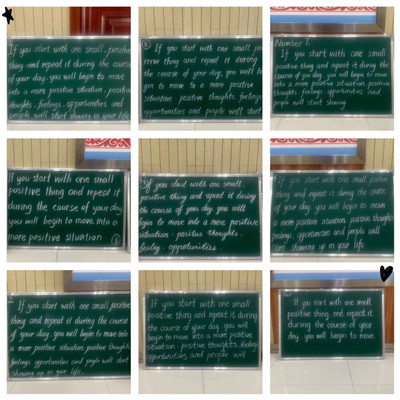 If you start with one small, positive
thing and repeat it during the course
of your day, you will begin to move
into a more positive situation, positive
thoughts, feelings, opportunities and
people will start showing in your life.
If you start with one small
positive thing and repeat it during
the course of your day, you will
begin to move to a more positive
situation positive thoughts, feelings
opportunities and people will start
Number 7.
If you start with one small
positive thing and repeat it during the
course of your day, you will begin to move
into a more positive situation, positive
thoughts, feelings, opportunities and
people will start showing
If you start with one small
positive thing and repeat it
during the course of your day
you will begin to move into a
more positive situation
If you start with one small,
positive thing and repeat it during
the course of your day, you will
begin to move into a more positive
situation, positive thoughts,
feeling opportunities
If you start with one small positive
thing and repeat it during the course
of your day, you will begin to move
a more positive situation, positive thoughts
feelings, opportunities and people will
start showing up in your life.
If you start with one small, positive
thing and repeat it during the course
of your day, you will begin to move into
a more positive situation, positive thoughts
feelings opportunities and people will start
showing up in your life.
If you start with one small
positive thing and repeat it during
the course of your day, you will
begin to move into a more positive
situation, positive thoughts, feeling
opportunities and people will
If you start with one small,
positive thing and repeat it
during the course of your
day, you will begin to move.